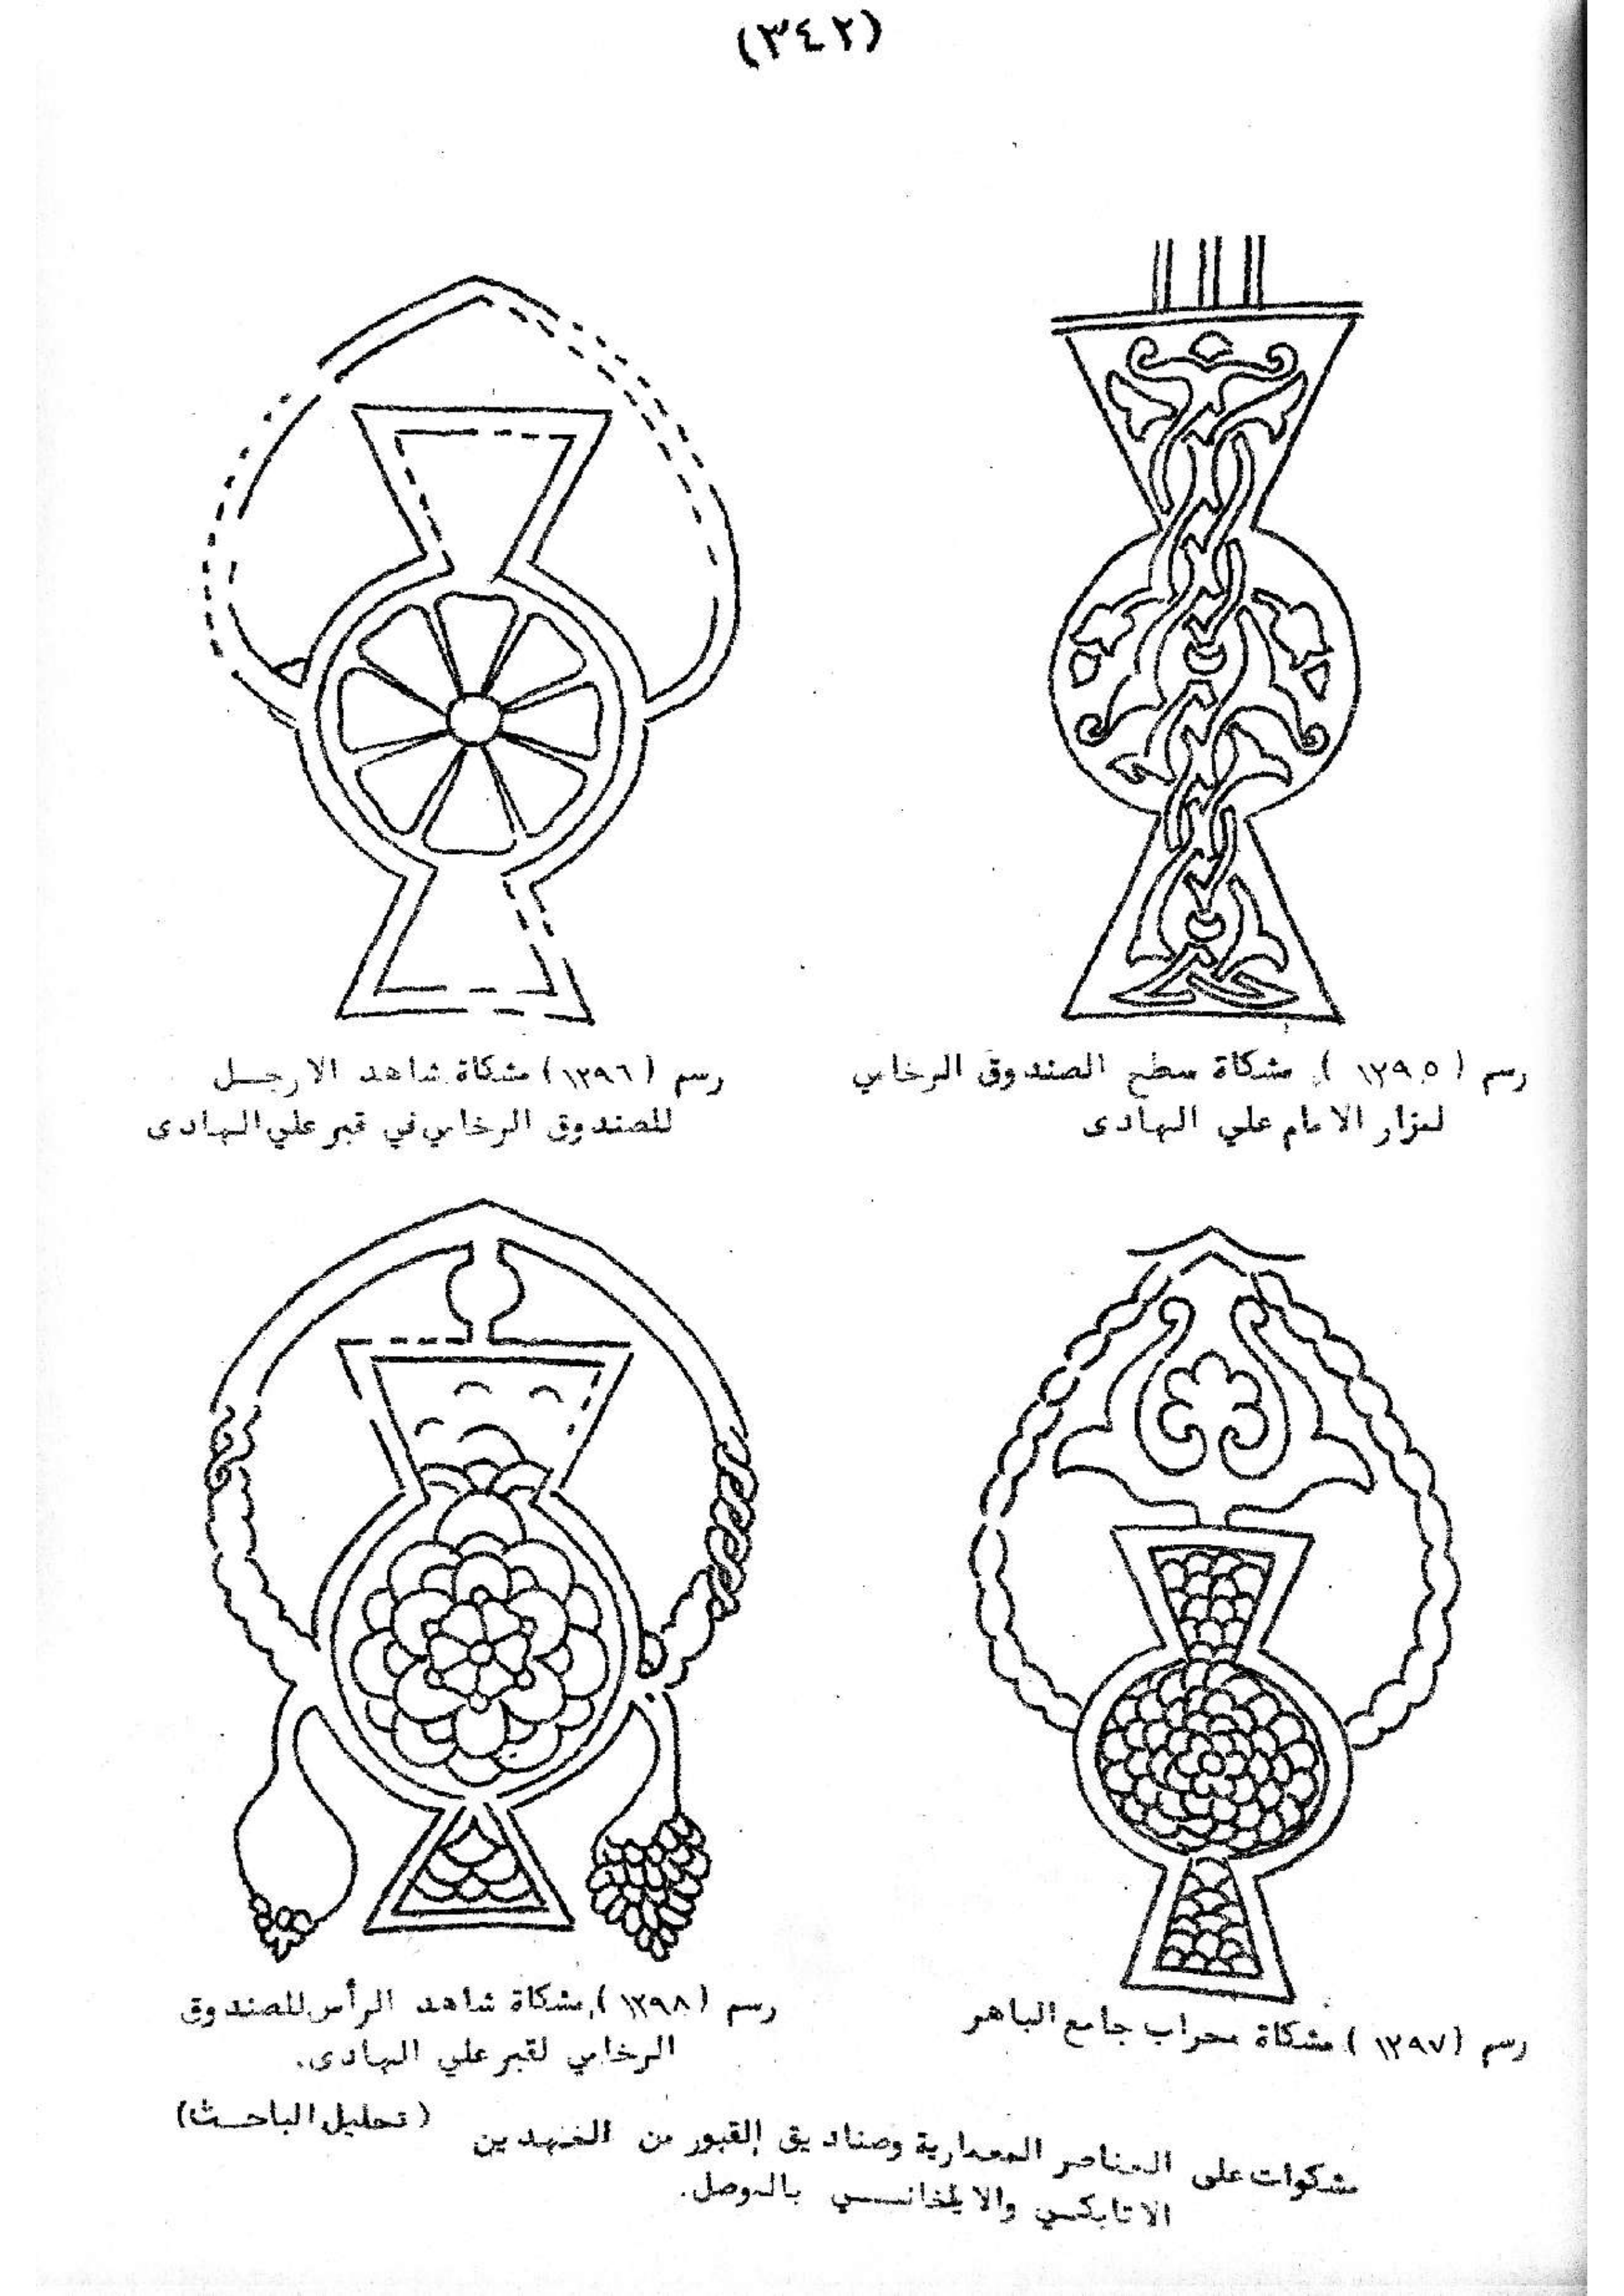 (٣٤٢)
رسم ( ١٢٩٥ ) مشكاة سطح الصندوق الرخامي
لمزار الامام علي الهادى
رسم ( ١٢٩٦ ) مشكاة شاهد الارجل
للصندوق الرخامي في قبر علي الهادى
رسم ( ١٢٩٧ ) مشكاة محراب جامع الباهر
رسم ( ١٢٩٨ ) مشكاة شاهد الرأس للصندوق
الرخامي لقبر علي الهادى.
مشكوات على العناصر المعمارية وصناديق القبور من العهدين (تحليل الباحث)
الاتابكي والايلخاني بالموصل.